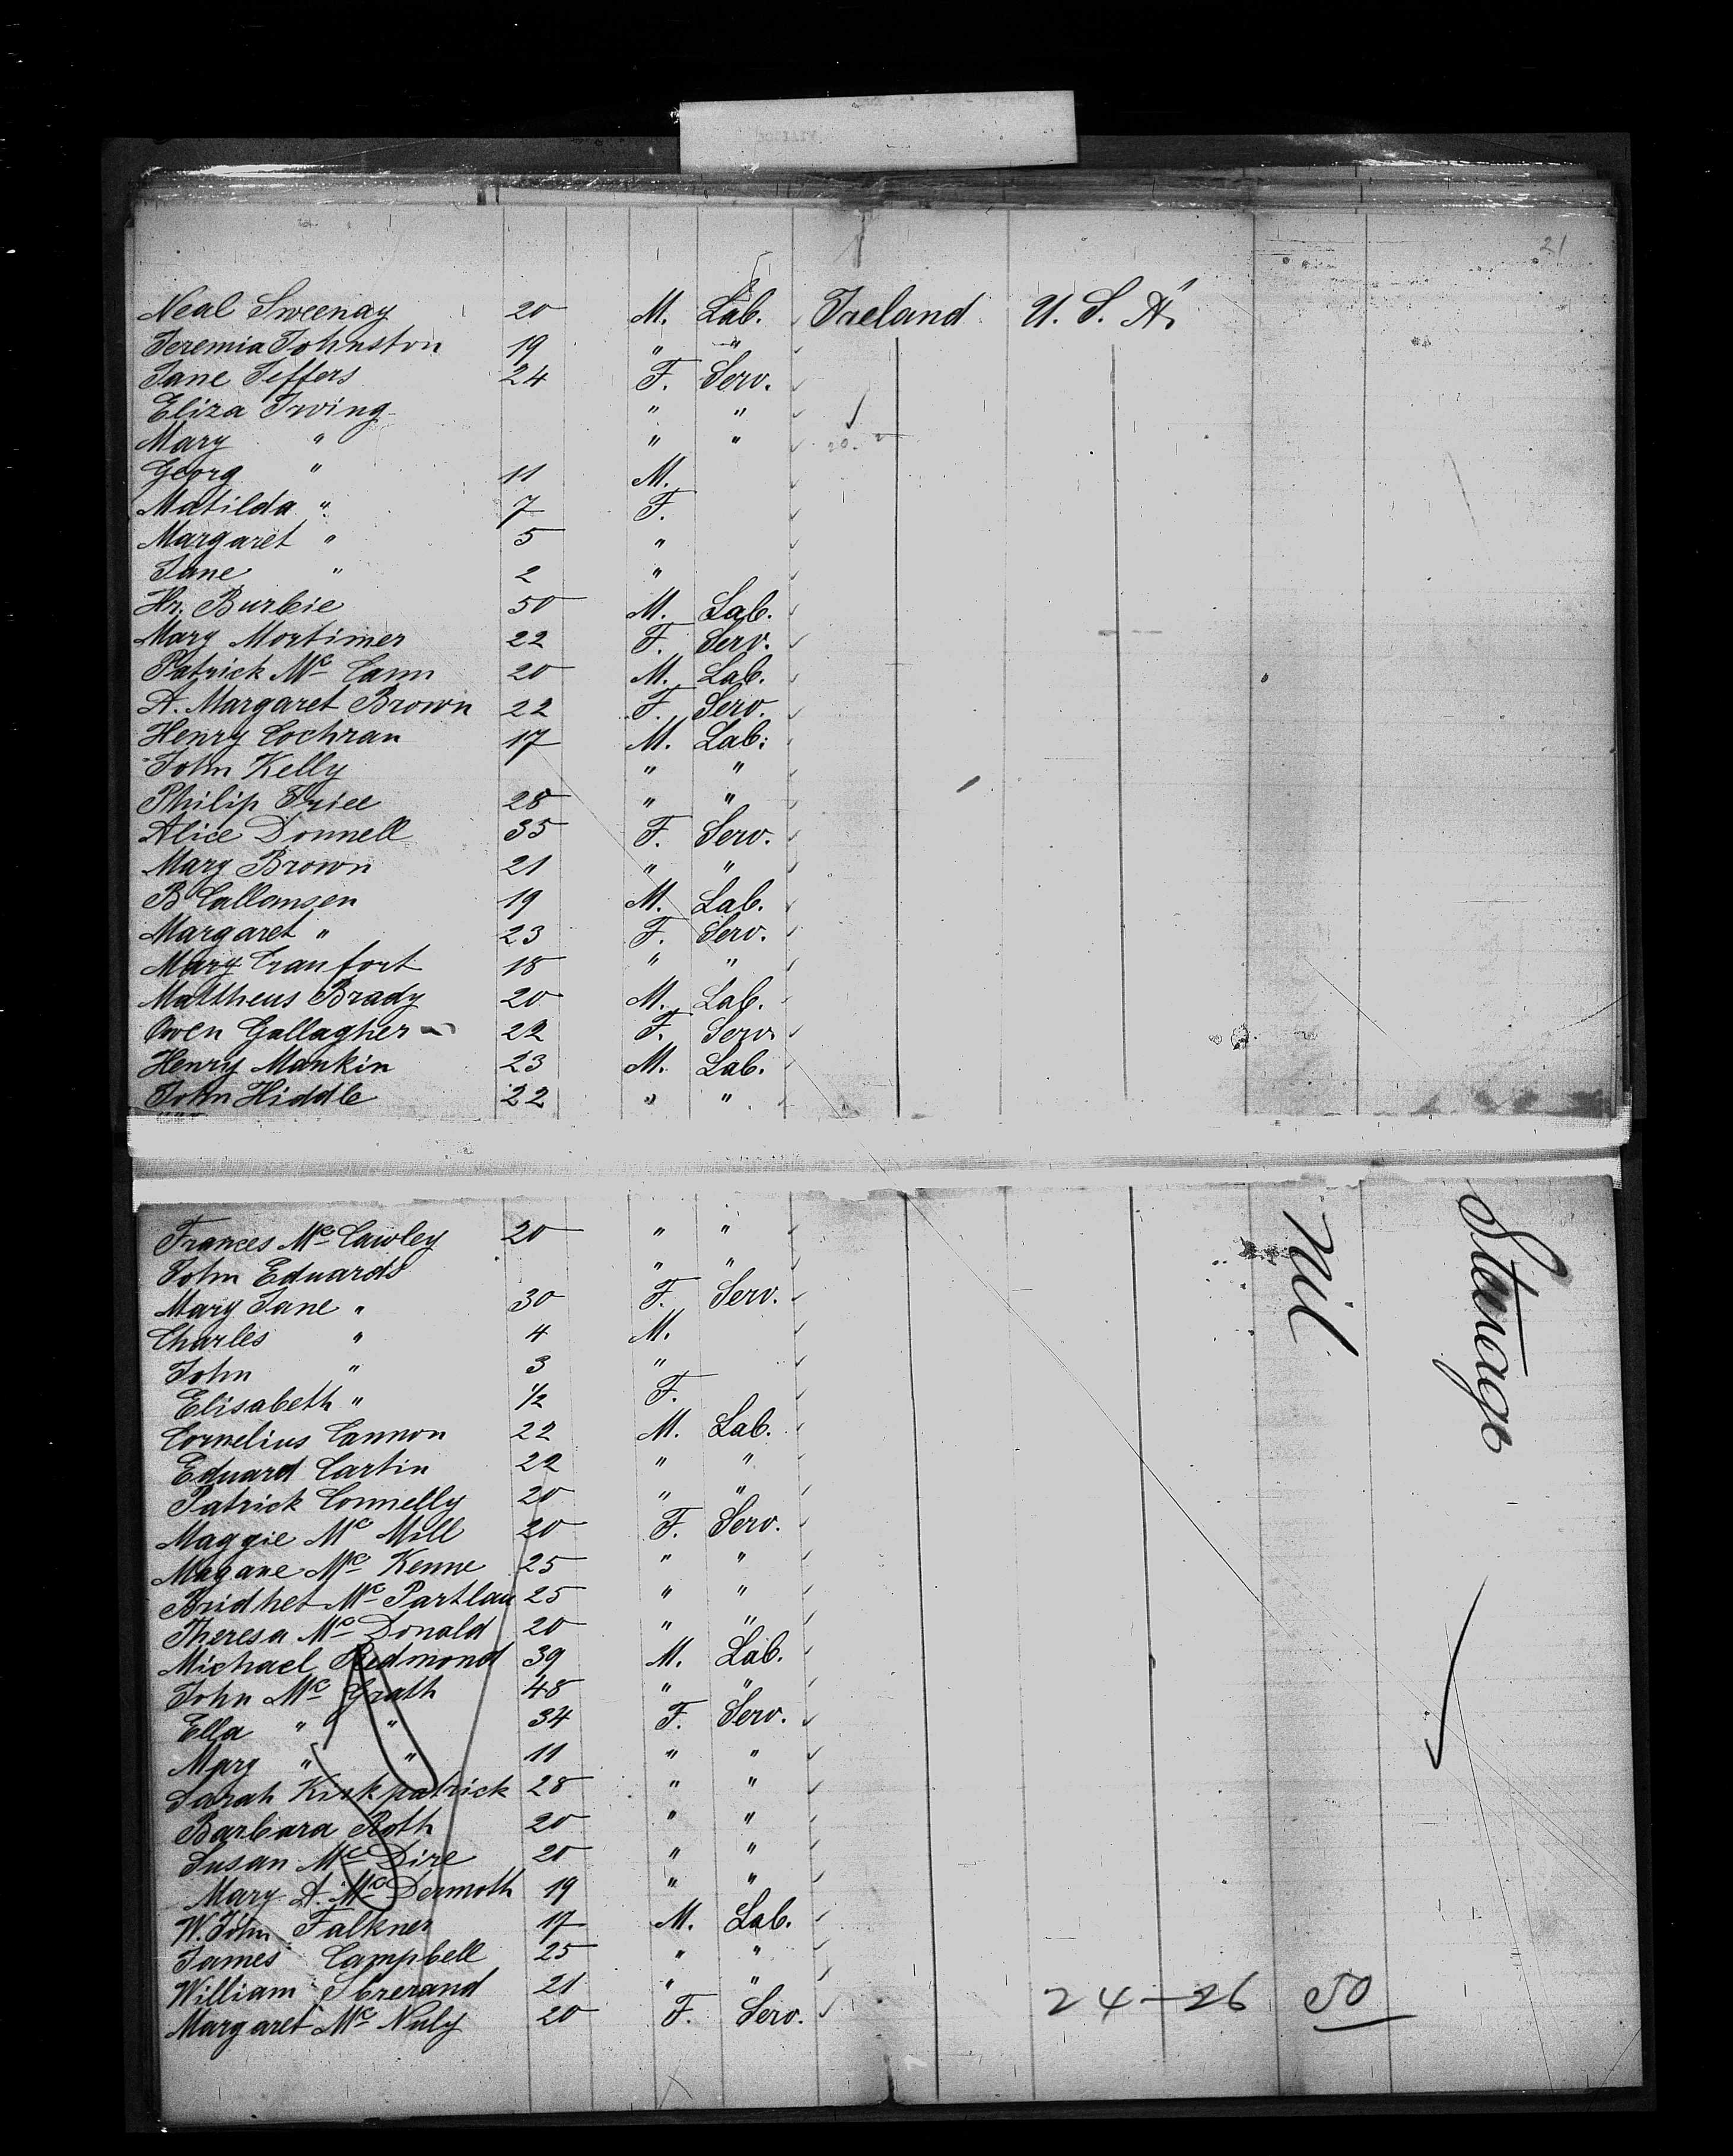 21
Neal Sweenay 20 M. Lab. Ireland U. S. A.
Jeremia Johnston 19 " "
Jane Jeffers 24 F. Serv.
Eliza Irving " "
Mary " " "
Georg " 11 M.
Matilda " 7 F.
Margaret " 5 "
Jane " 2 "
Hr. Burbie 50 M. Lab.
Mary Mortimer 22 F. Serv.
Patrick Mc Cann 20 M. Lab.
A. Margaret Brown 22 F. Serv.
Henry Cochran 17 M. Lab.
John Kelly " "
Philip Friel 28 " "
Alice Donnell 35 F. Serv.
Mary Brown 21 " "
B Callansen 19 M. Lab.
Margaret " 23 F. Serv.
Mary Cranfort 18 " "
Mattheus Brady 20 M. Lab.
Owen Gallagher 22 F. Serv.
Henry Mankin 23 M. Lab.
John Hiddle 22 " "
Frances Mc Cawley 20 " "
John Eduards " "
Mary Jane " 30 F. Serv.
Charles " 4 M.
John " 3 "
Elisabeth " 1/2 F.
Cornelius Cannon 22 M. Lab.
Eduard Cartin 22 " "
Patrick Connelly 20 " "
Maggie Mc Mill 20 F. Serv.
Magane Mc Kenne 25 " "
Bridhet Mc Partlau 25 " "
Theresa Mc Donald 20 " "
Michael Redmond 39 M. Lab.
John Mc Grath 48 " "
Ella " " 34 F. Serv.
Mary " " 11 " "
Sarah Kirkpatrick 28 " "
Barbara Roth 20 " "
Susan Mc Dire 20 " "
Mary A. Mc Dermoth 19 " "
W. John Falkner 17 M. Lab.
James Campbell 25 " "
William 21 " "
Margaret Mc Nuly 20 F. Serv. 24-26 50
Nil
Steerage